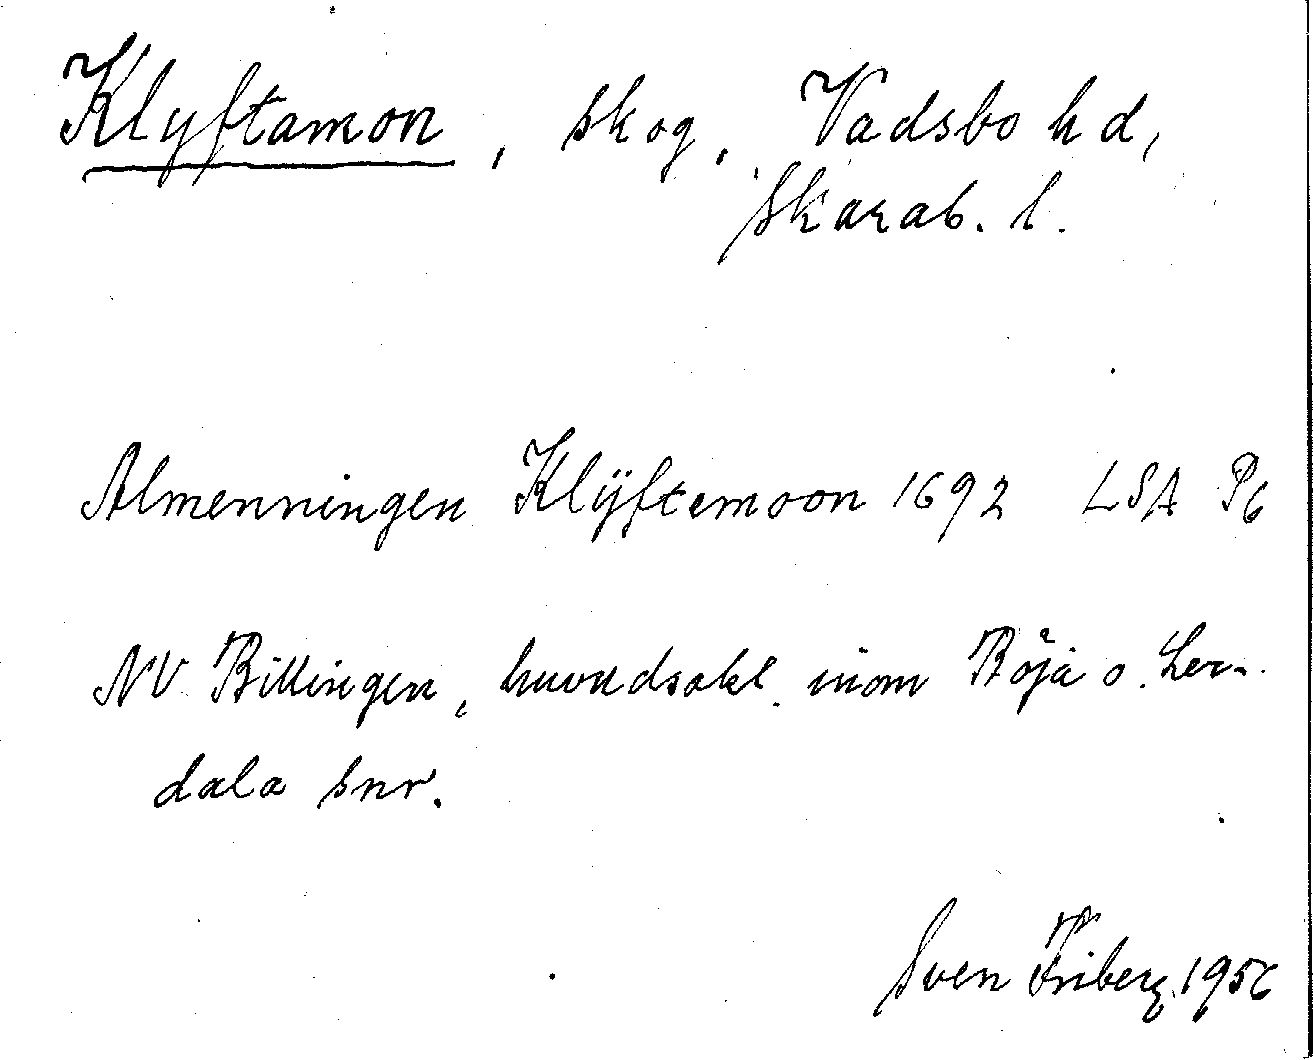 Klyftamon, skog, Vadsbo hd,
Skarab. l.
Almenningen Klÿftemoon 1692 LSA P6
NV Billingen, huvudsakl. inom Böja o. Ler-
dala snr.
Sven Friberg 1956